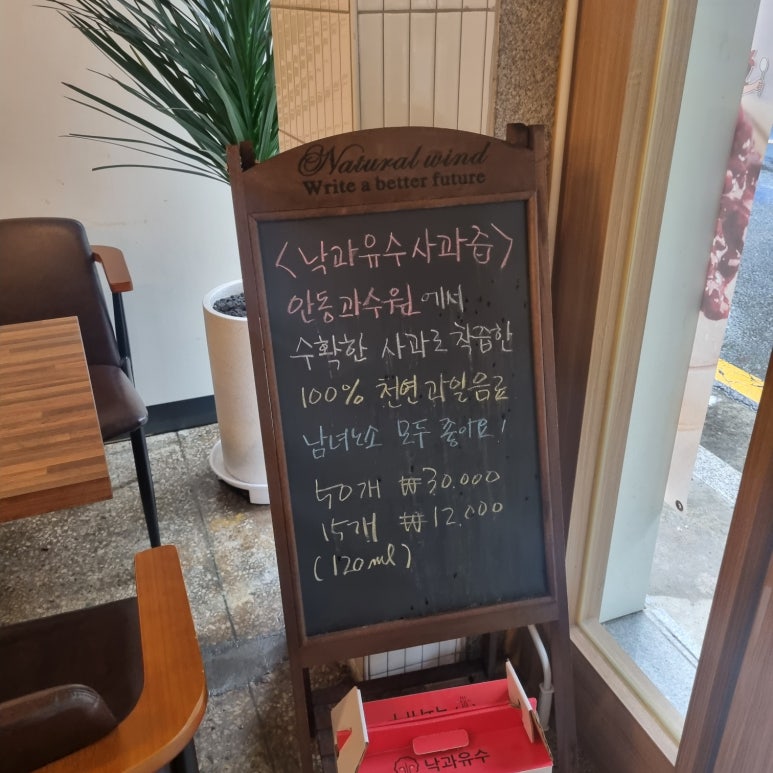 Natural wind
Write a better future
<낙과유수사과즙>
안동과수원에서
수확한 사과로 착즙한
100% 천연과일음료
남녀노소 모두 좋아요!
50개 ₩30.000
15개 ₩12.000
(120ml)
낙과유수